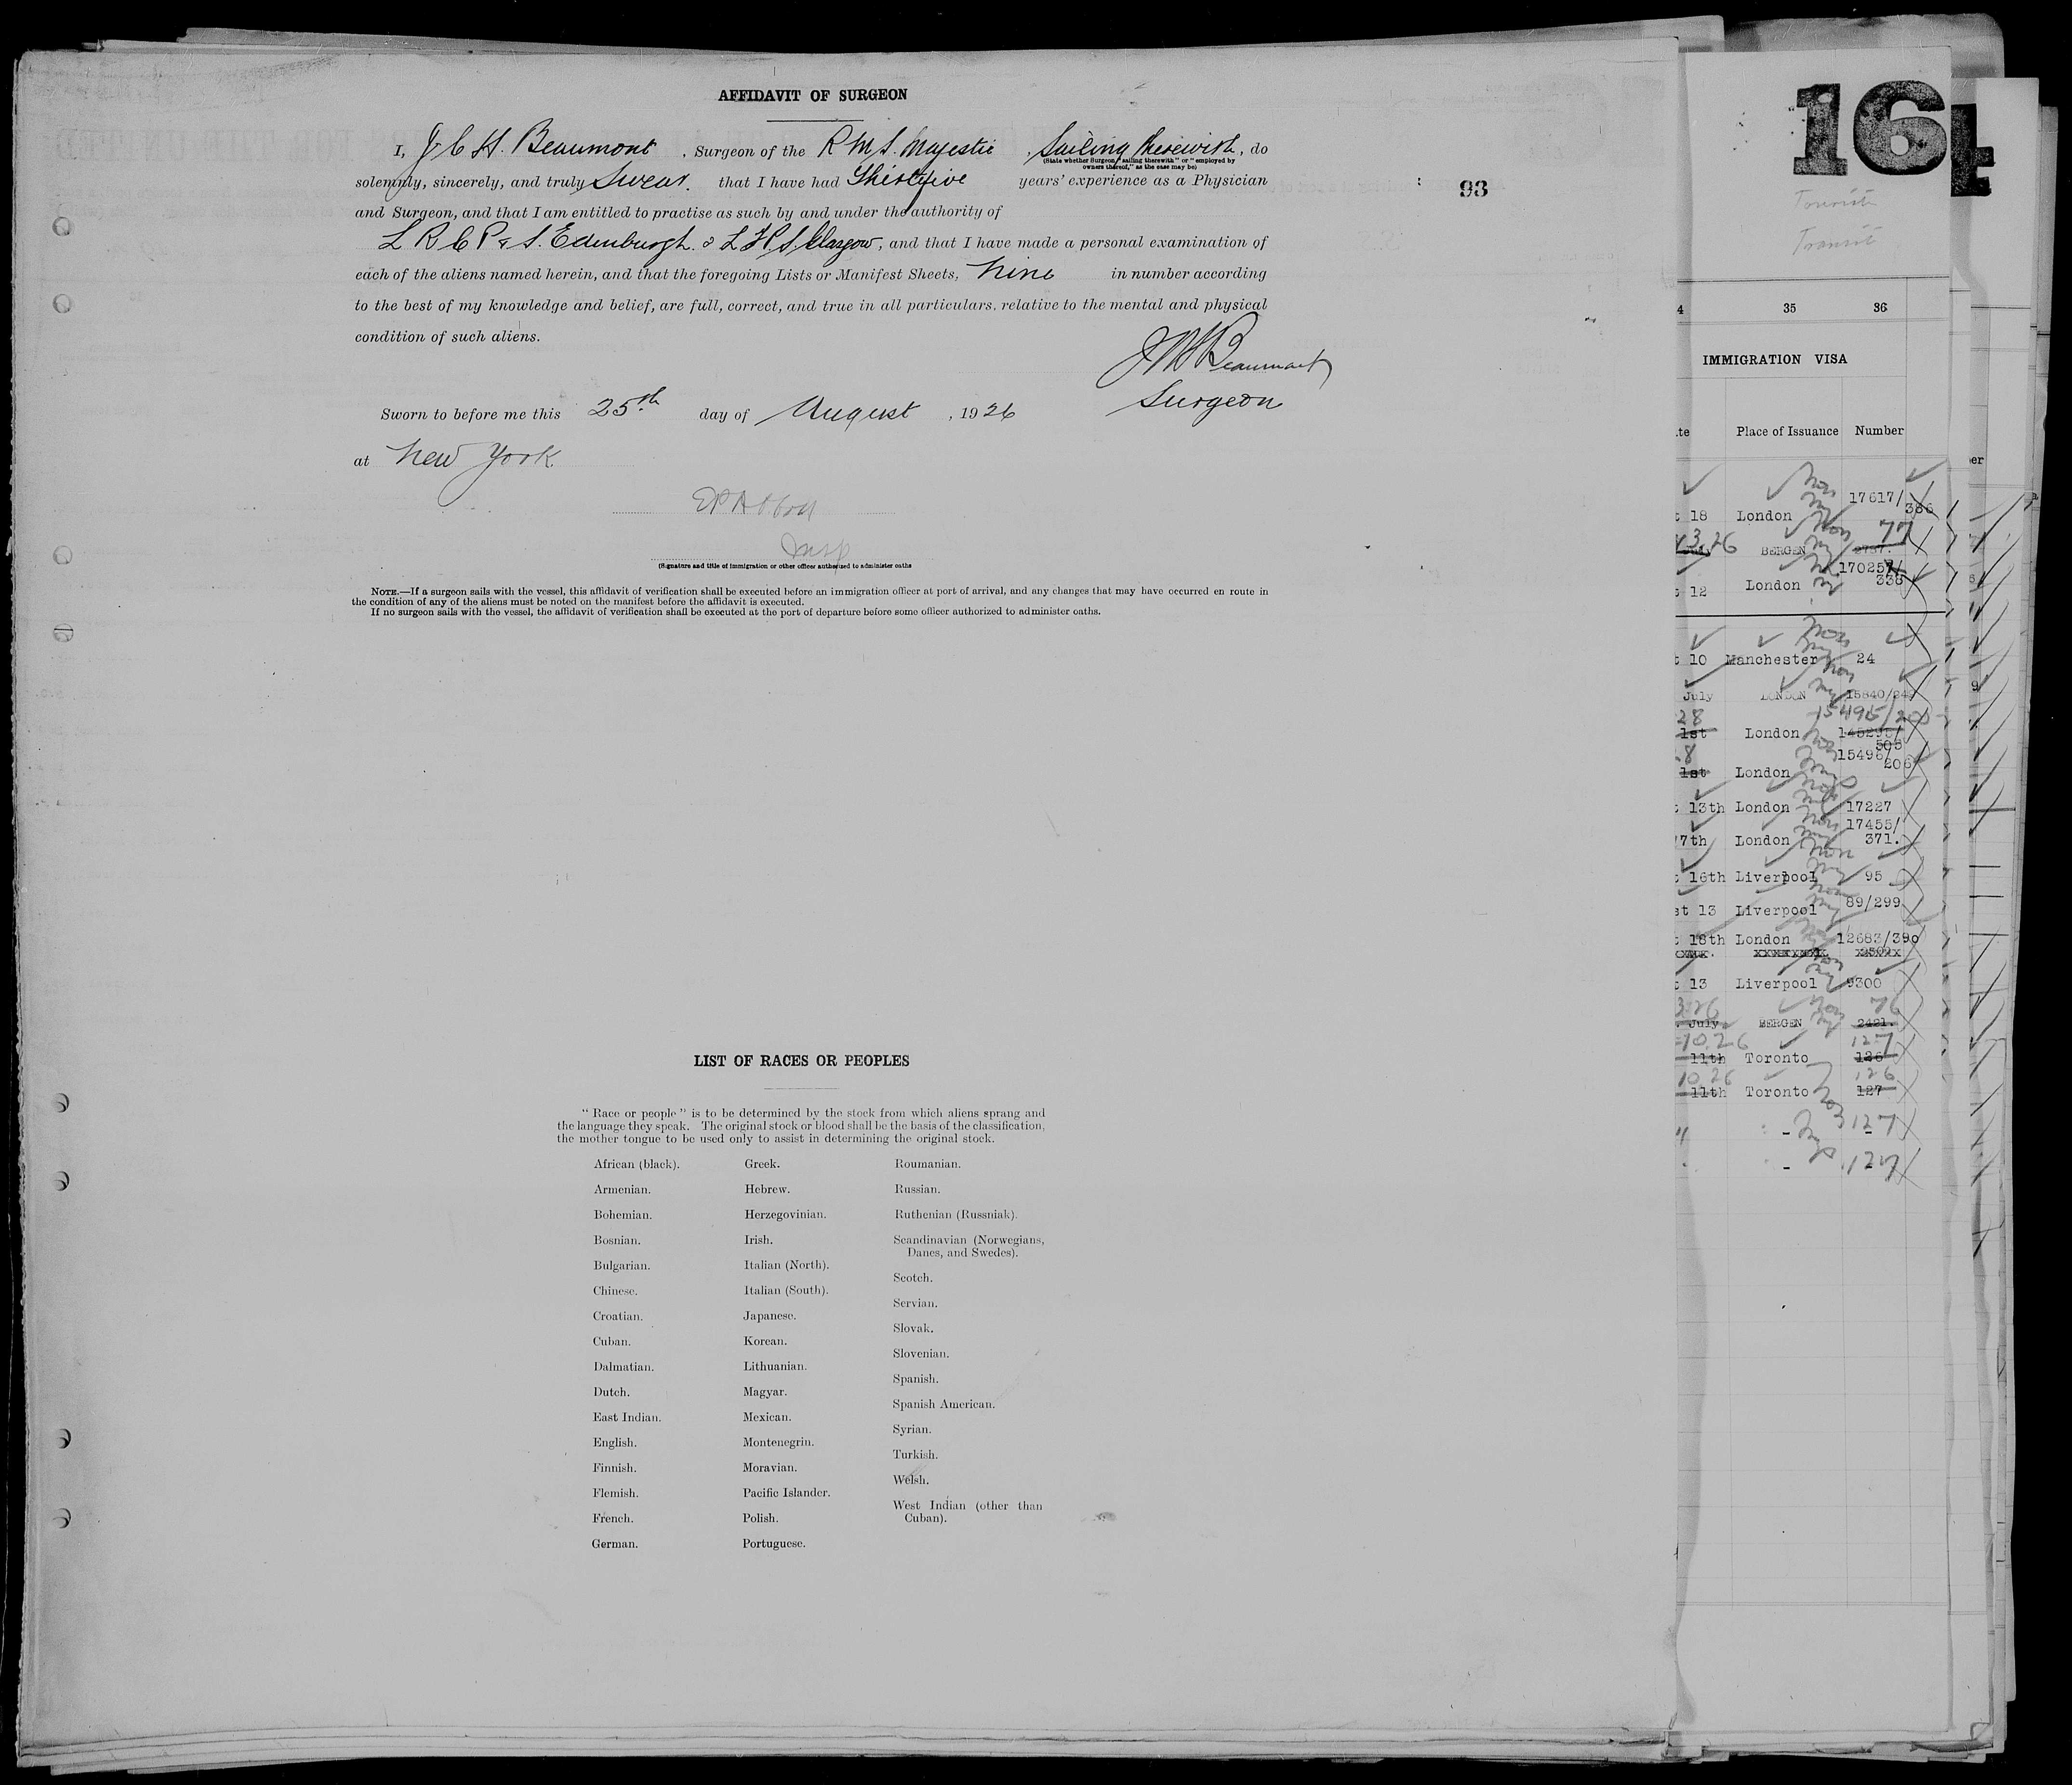 AFFIDAVIT OF SURGEON
I, J C H. Beaumont, Surgeon of the R M S. Majestic, Sailing therewith, do
(State whether Surgeon "sailing therewith" or "employed by
owners thereof," as the case may be)
solemnly, sincerely, and truly Swear. that I have had Thirty five years' experience as a Physician
and Surgeon, and that I am entitled to practise as such by and under the authority of
L R C P & S. Edinburgh. & L F P S. Glasgow, and that I have made a personal examination of
each of the aliens named herein, and that the foregoing Lists or Manifest Sheets, Nine in number according
to the best of my knowledge and belief, are full, correct, and true in all particulars, relative to the mental and physical
condition of such aliens.
Beaumont
Surgeon
Sworn to before me this 25th day of August, 1926
at New York.
Insp
(Signature and title of immigration or other officer authorized to administer oaths
NOTE.—If a surgeon sails with the vessel, this affidavit of verification shall be executed before an immigration officer at port of arrival, and any changes that may have occurred en route in
the condition of any of the aliens must be noted on the manifest before the affidavit is executed.
If no surgeon sails with the vessel, the affidavit of verification shall be executed at the port of departure before some officer authorized to administer oaths.
93
LIST OF RACES OR PEOPLES
"Race or people" is to be determined by the stock from which aliens sprang and
the language they speak. The original stock or blood shall be the basis of the classification,
the mother tongue to be used only to assist in determining the original stock.
African (black).
Armenian.
Bohemian.
Bosnian.
Bulgarian.
Chinese.
Croatian.
Cuban.
Dalmatian.
Dutch.
East Indian.
English.
Finnish.
Flemish.
French.
German.
Greek.
Hebrew.
Herzegovinian.
Irish.
Italian (North).
Italian (South).
Japanese.
Korean.
Lithuanian.
Magyar.
Mexican.
Montenegrin.
Moravian.
Pacific Islander.
Polish.
Portuguese.
Roumanian.
Russian.
Ruthenian (Russniak).
Scandinavian (Norwegians,
Danes, and Swedes).
Scotch.
Servian.
Slovak.
Slovenian.
Spanish.
Spanish American.
Syrian.
Turkish.
Welsh.
West Indian (other than
Cuban).
16
Tourist
Transit
4 35 36
IMMIGRATION VISA
te Place of Issuance Number
18 London 17617/
386
3.26 BERGEN 77
12 London 338
10 Manchester 24
July LONDON
28 15495/200
1st London 505
8 15496/
1st London 206
13th London 17227
7th London 17455/
371.
16th Liverpool 95
st 13 Liverpool 89/299
18th London 12683/390
13 Liverpool 9300
3.26 76
July BERGEN 2421.
10.26 127
11th Toronto 126
10 26 126
11th Toronto 127
" - 127
- 127